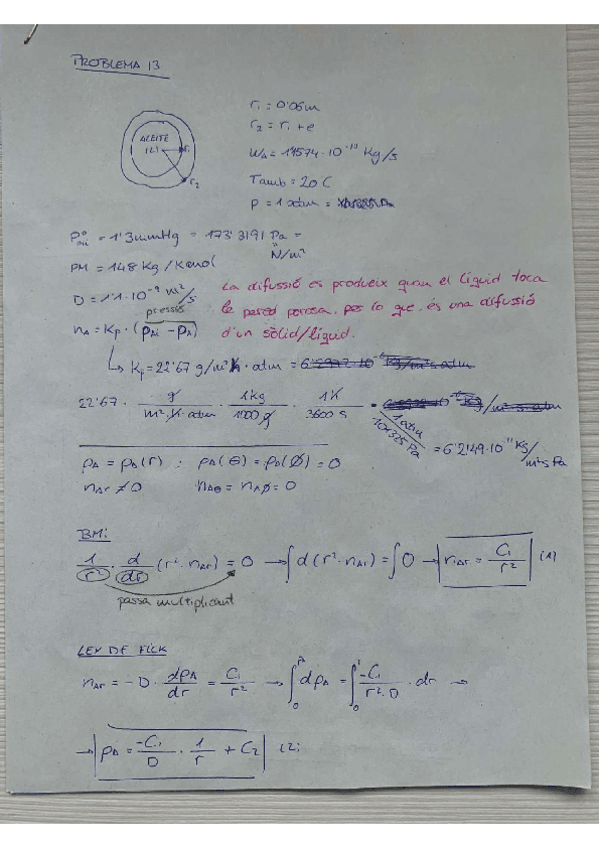 PROBLEMA 13
r1 = 0'06m
r2 = r1 + e
ACEITE
(L)
r1
r2
WA = 1'1574·10⁻¹⁰ Kg/s
Tamb = 20 C
P = 1 atm =
= 1'3mmHg = 173'3191 Pa =
N/m²
PM = 148 Kg/Kmol
D = 1'1·10⁻⁹ m²/s
La difussió es produeix quan el líquid toca
la pared porosa, per lo que és una difussió
d'un sòlid/líquid.
pressió
nA = Kp · (PAi - PA)
↳ Kp = 22'67 g/m² h · atm =
22'67 · g/m²·h·atm · 1Kg/1000 g · 1h/3600 s · 1 atm/101325 Pa = 6'2149·10⁻¹¹ Kg/m²s Pa
ρA = ρA(r) ; ρA(θ) = ρA(Ø) = 0
nAr ≠ 0 nAθ = nAØ = 0
BM:
1/r² · d/dr (r² · nAr) = 0 → ∫ d(r² · nAr) = ∫ 0 → nAr = C1/r² (1)
passa multiplicant
LEY DE FICK
nAr = -D · dρA/dr = C1/r² → ∫ dρA = ∫ -C1/r²·D · dr →
→ ρA = -C1/D · 1/r + C2 (2)